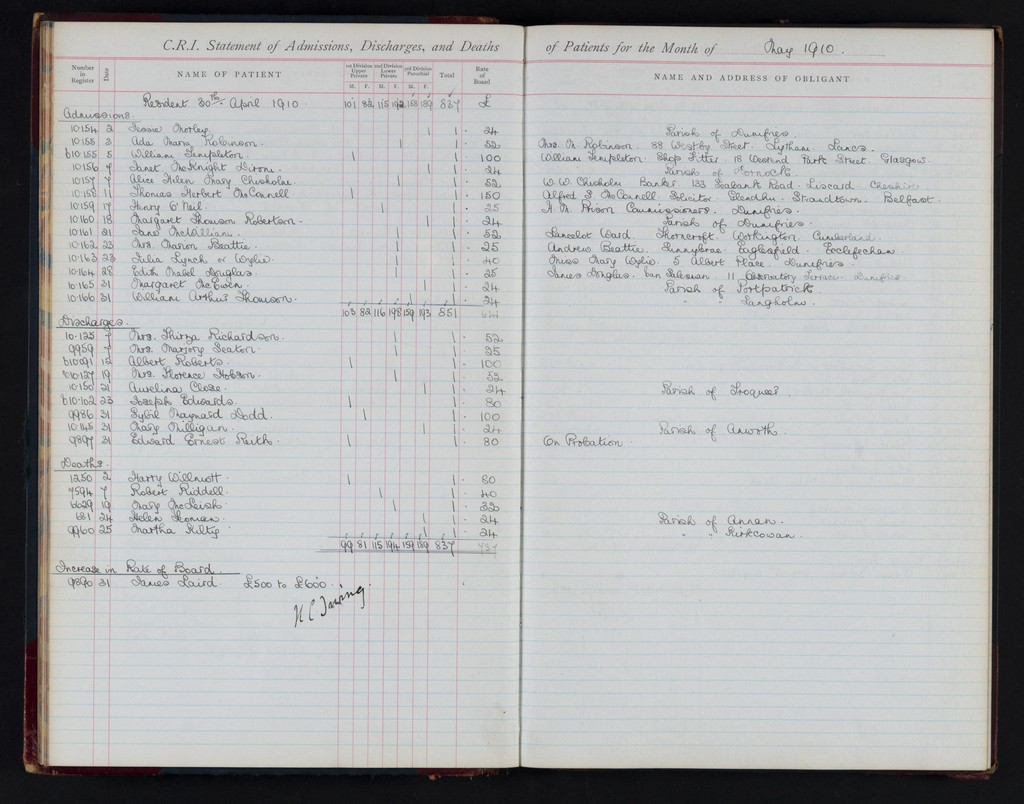 C.R.I. Statement of Admissions, Discharges, and Deaths of Patients for the Month of May 1910.
Number in Register Date NAME OF PATIENT 1st Division Upper Private M. F. 2nd Division Lower Private M. F. 3rd Division Parochial M. F. Total Rate of Board NAME AND ADDRESS OF OBLIGANT
Resident 30th April 1910 101 82 115 192 158 189 837 £
Admissions.
10154 2 Jessie Morley 1 1 24 Parish of Dumfries.
10155 3 Ada Mary Robinson 1 1 52 Mrs. M. Robinson 88 Westby Street. Lytham. Lancs.
b10155 5 William Templeton 1 1 100 William Templeton Shop Fitter 18 Westend Park Street Glasgow
10156 7 Janet McKnight 1 1 24 Parish of
10157 7 Alice Helen Mary Chisholm 1 1 52 W. W. Chisholm Banker 133 Road. Liscard Cheshire
10158 11 Thomas Herbert McConnell 1 1 150 Alfred S. McConnell Solicitor Glendhu Strandtown. Belfast.
10159 17 Henry O'Neil 1 1 25 H. M. Prison Commissioners. Dumfries.
10160 18 Margaret Thomson Robertson 1 1 24 Parish of Dumfries.
10161 21 Jane McWilliam 1 1 52 Lancelot Ward Thorncroft. Workington. Cumberland.
10162 23 Mrs. Marion Beattie 1 1 25 Andrew Beattie. Sunnybrae. Eaglesfield. Ecclefechan.
10163 23 Julia Lynch or Wylie 1 1 40 Miss Mary Wylie 5 Albert Place. Dumfries.
10164 28 Edith Mabel Douglas 1 1 25 James Douglas. Van Salesman 11 Observatory Terrace. Dumfries
10165 31 Margaret McEwen 1 1 24 Parish of Portpatrick.
10166 31 William Arthur Thomson 1 1 24 " " Langholm.
103 82 116 198 159 193 851
Discharges.
10125 7 Mrs. Thirza Richardson 1 1 52
9959 7 Mrs. Marjory Seaton 1 1 25
b10091 12 Albert Roberts 1 1 100
10127 19 Mrs. Florence Hobson 1 1 52
10150 21 Aurelina Close 1 1 24 Parish of Troqueer
b10102 23 Joseph Edwards 1 1 80
9986 31 Sybil Maynard Dodd 1 1 100
10145 31 Mary Milligan 1 1 24 Parish of Anwoth.
9897 31 Edward Ernest 1 1 80 On Probation.
Deaths.
1250 2 Harry Willmott 1 1 80
7594 7 Robert Riddell 1 1 40
6629 19 Mary McLeish 1 1 32
681 24 Helen 1 1 24 Parish of Annan.
9960 25 Martha Kiltie 1 1 24 " " Kirkcowan.
99 81 115 194 159 189 837
Increase in Rate of Board
9890 31 James Laird £500 to £600